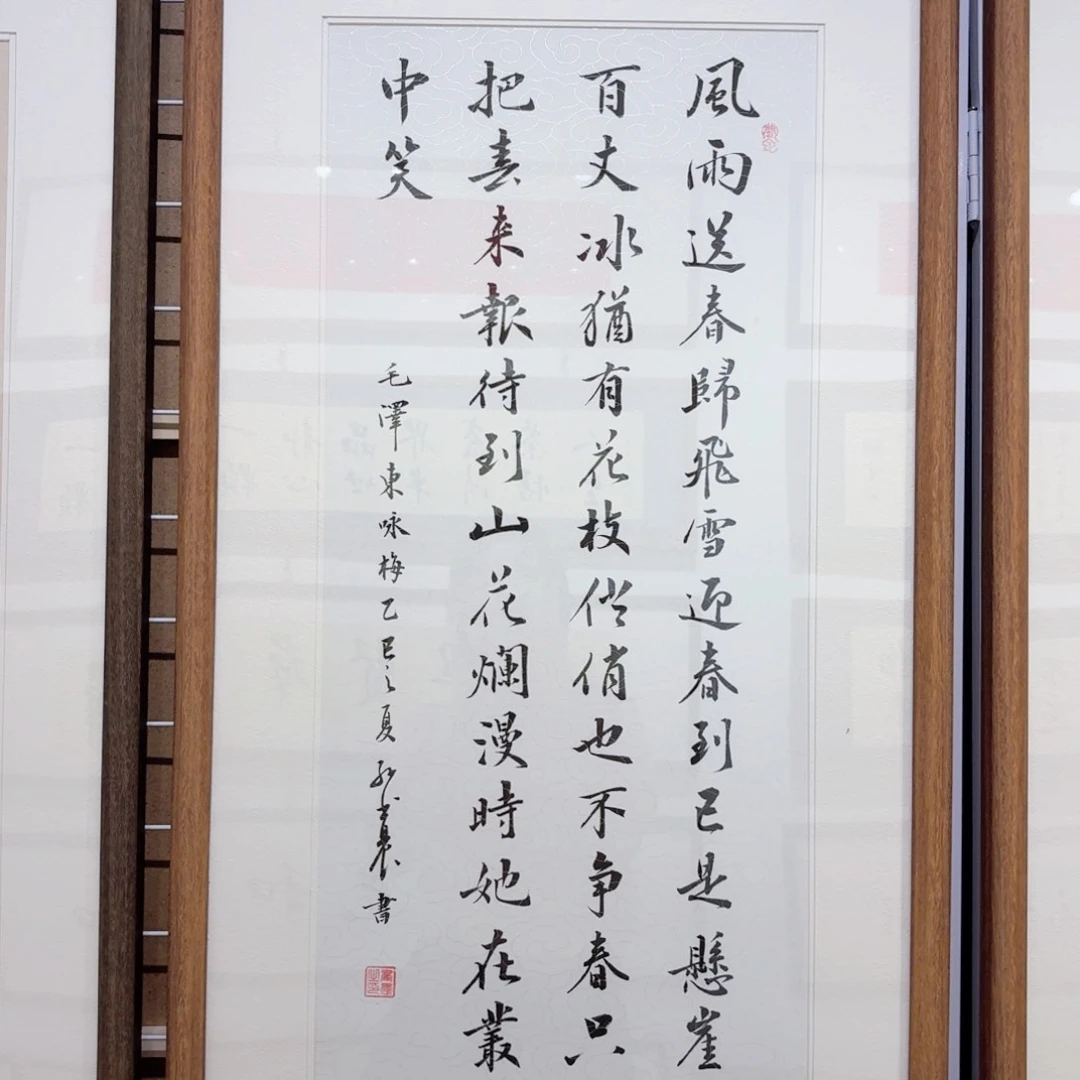 風雨送春歸飛雪迎春到已是懸崖
百丈冰猶有花枝俏俏也不争春只
把春来報待到山花爛漫時她在叢
中笑
毛澤東咏梅乙巳之夏 書